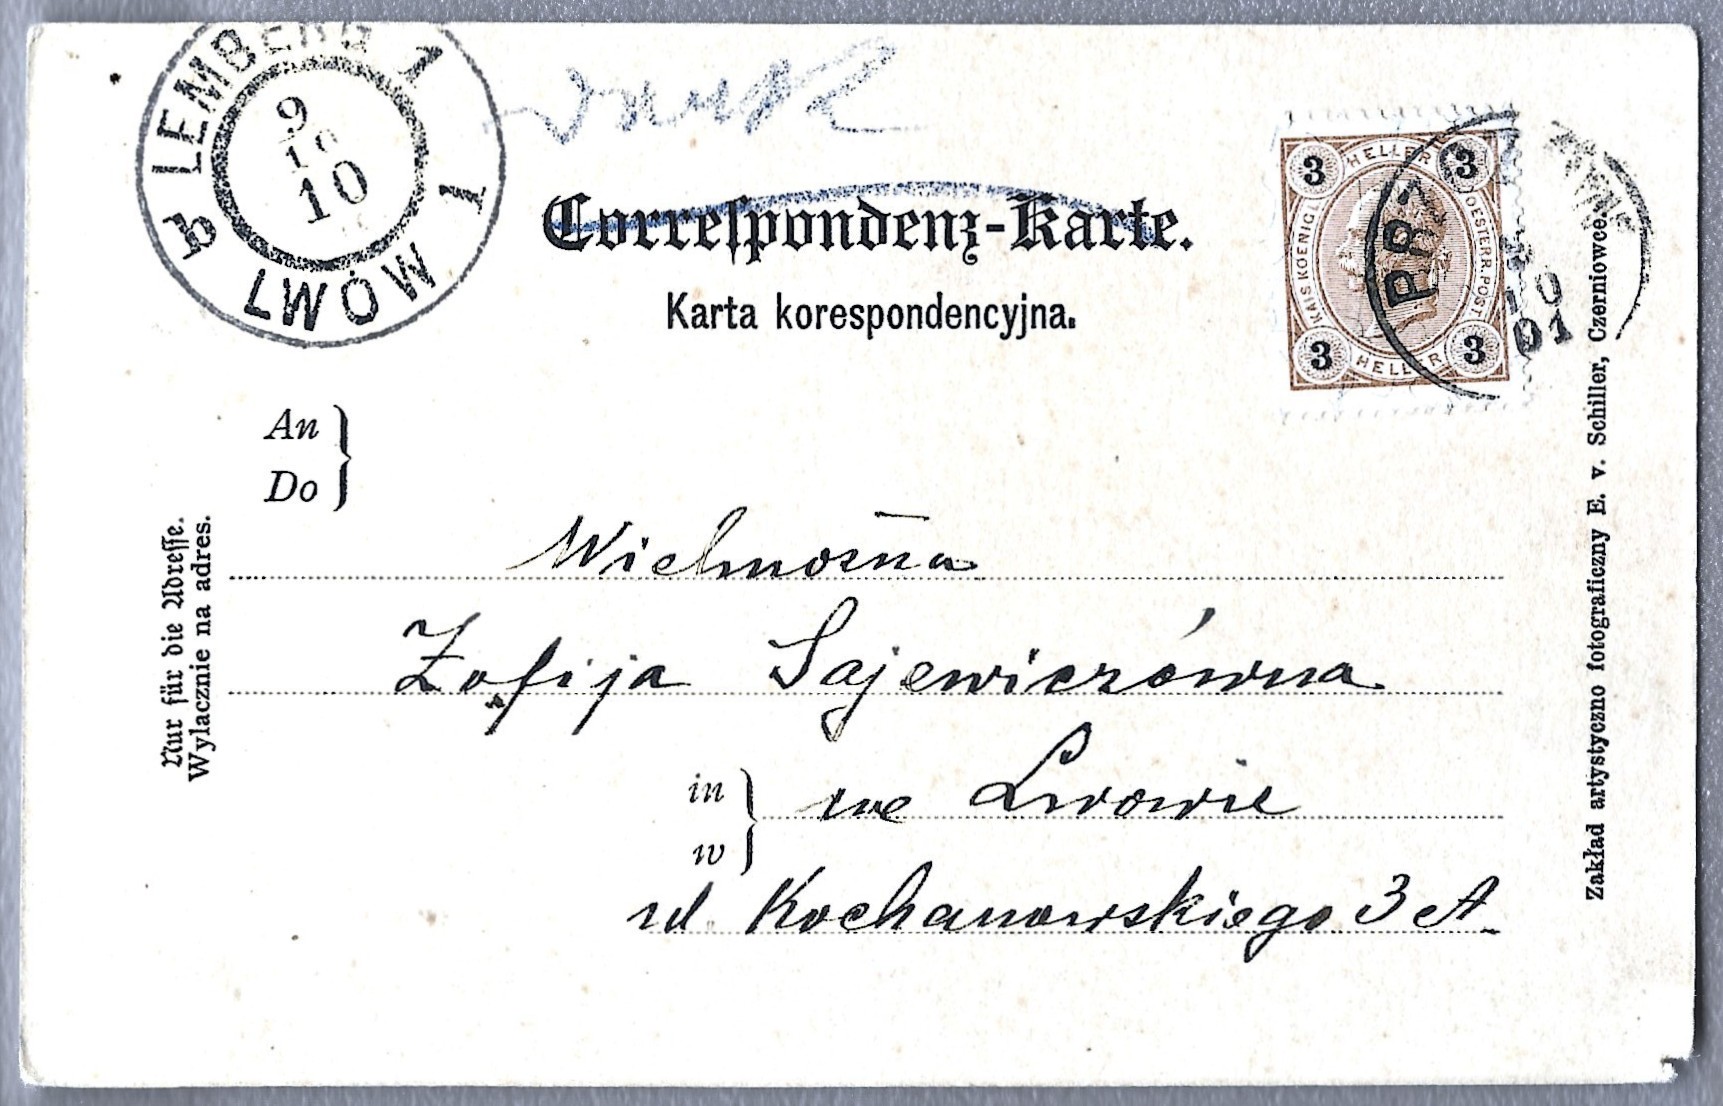 LEMBERG 1
9
10
10
b LWÓW 1
Correſpondenz-Karte.
Karta korespondencyjna.
3 HELLER 3
KAIS. KOENIG. OESTERR. POST
3 HELLER 3
PRZ
10
01
An
Do
Wielmożna
Zofija Sajewiczówna
in
w
we Lwowie
ul. Kochanowskiego 3 A
Nur für die Adreſſe.
Wyłacznie na adres.
Zakład artystyczno fotograficzny E. v. Schiller, Czerniowce.